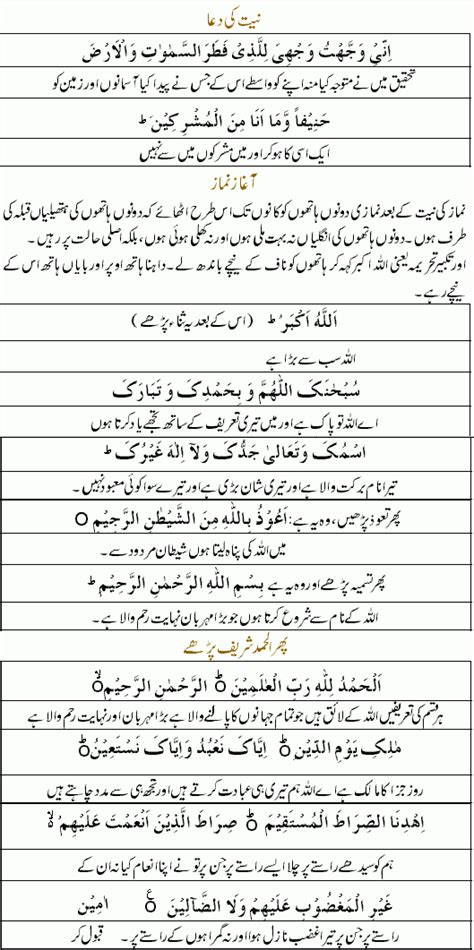 نیت کی دعا
اِنِّیۡ وَجَّهۡتُ وَجۡهِیَ لِلَّذِیۡ فَطَرَ السَّمٰوٰتِ وَالۡاَرۡضَ
تحقیق میں نے متوجہ کیا منہ اپنے کو واسطے اس کے جس نے پیدا کیا آسمانوں اور زمین کو
حَنِیۡفاً وَّمَا اَنَا مِنَ الۡمُشۡرِکِیۡنَ ؕ
ایک اسی کا ہو کر اور میں مشرکوں میں سے نہیں
آغاز نماز
نماز کی نیت کے بعد نمازی دونوں ہاتھوں کو کانوں تک اس طرح اٹھائے کہ دونوں ہاتھوں کی ہتھیلیاں قبلہ کی
طرف ہوں۔ دونوں ہاتھوں کی انگلیاں نہ بہت ملی ہوں اور نہ کھلی ہوئی ہوں، بلکہ اصلی حالت پر رہیں۔
اور تکبیر تحریمہ یعنی اللہ اکبر کہہ کر ہاتھوں کو ناف کے نیچے باندھ لے۔ داہنا ہاتھ اوپر اور بایاں ہاتھ اس کے
نیچے رہے۔
اَللّٰهُ اَکۡبَرُ ؕ (اس کے بعد یہ ثناء پڑھے)
اللہ سب سے بڑا ہے
سُبۡحٰنَکَ اللّٰهُمَّ وَ بِحَمۡدِکَ وَ تَبَارَکَ
اے اللہ تو پاک ہے اور میں تیری تعریف کے ساتھ تجھے یاد کرتا ہوں
اسۡمُکَ وَتَعَالٰی جَدُّکَ وَلَاۤ اِلٰهَ غَیۡرُکَ ؕ
تیرا نام برکت والا ہے اور تیری شان بڑی ہے اور تیرے سوا کوئی معبود نہیں۔
پھر تعوذ پڑھیں، وہ یہ ہے: اَعُوۡذُ بِاللّٰهِ مِنَ الشَّیۡطٰنِ الرَّجِیۡمِ ○
میں اللہ کی پناہ لیتا ہوں شیطان مردود سے۔
پھر تسمیہ پڑھے اور وہ یہ ہے بِسۡمِ اللّٰهِ الرَّحۡمٰنِ الرَّحِیۡمِ ؕ
اللہ کے نام سے شروع کرتا ہوں جو بڑا مہربان نہایت رحم والا ہے۔
پھر الحمد شریف پڑھے
اَلۡحَمۡدُ لِلّٰهِ رَبِّ الۡعٰلَمِیۡنَ ○ؕ الرَّحۡمٰنِ الرَّحِیۡمِ ○ۙ
ہر قسم کی تعریفیں اللہ کے لائق ہیں جو تمام جہانوں کا پالنے والا ہے بڑا مہربان اور نہایت رحم والا ہے
مٰلِکِ یَوۡمِ الدِّیۡنِ ○ؕ اِیَّاکَ نَعۡبُدُ وَاِیَّاکَ نَسۡتَعِیۡنُ ○ؕ
روز جزا کا مالک ہے اے اللہ ہم تیری ہی عبادت کرتے ہیں اور تجھ ہی سے مدد چاہتے ہیں
اِهۡدِنَا الصِّرَاطَ الۡمُسۡتَقِیۡمَ ○ؕ صِرَاطَ الَّذِیۡنَ اَنۡعَمۡتَ عَلَیۡهِمۡ ○ۙ
ہم کو سیدھے راستے پر چلا ایسے راستے پر جن پر تو نے اپنا انعام کیا نہ ان کے
غَیۡرِ الۡمَغۡضُوۡبِ عَلَیۡهِمۡ وَلَا الضَّآلِّیۡنَ ○ۧ اٰمِیۡن
راستے پر جن پر تیرا غضب نازل ہوا اور نہ گمراہوں کے راستے پر۔ قبول کر